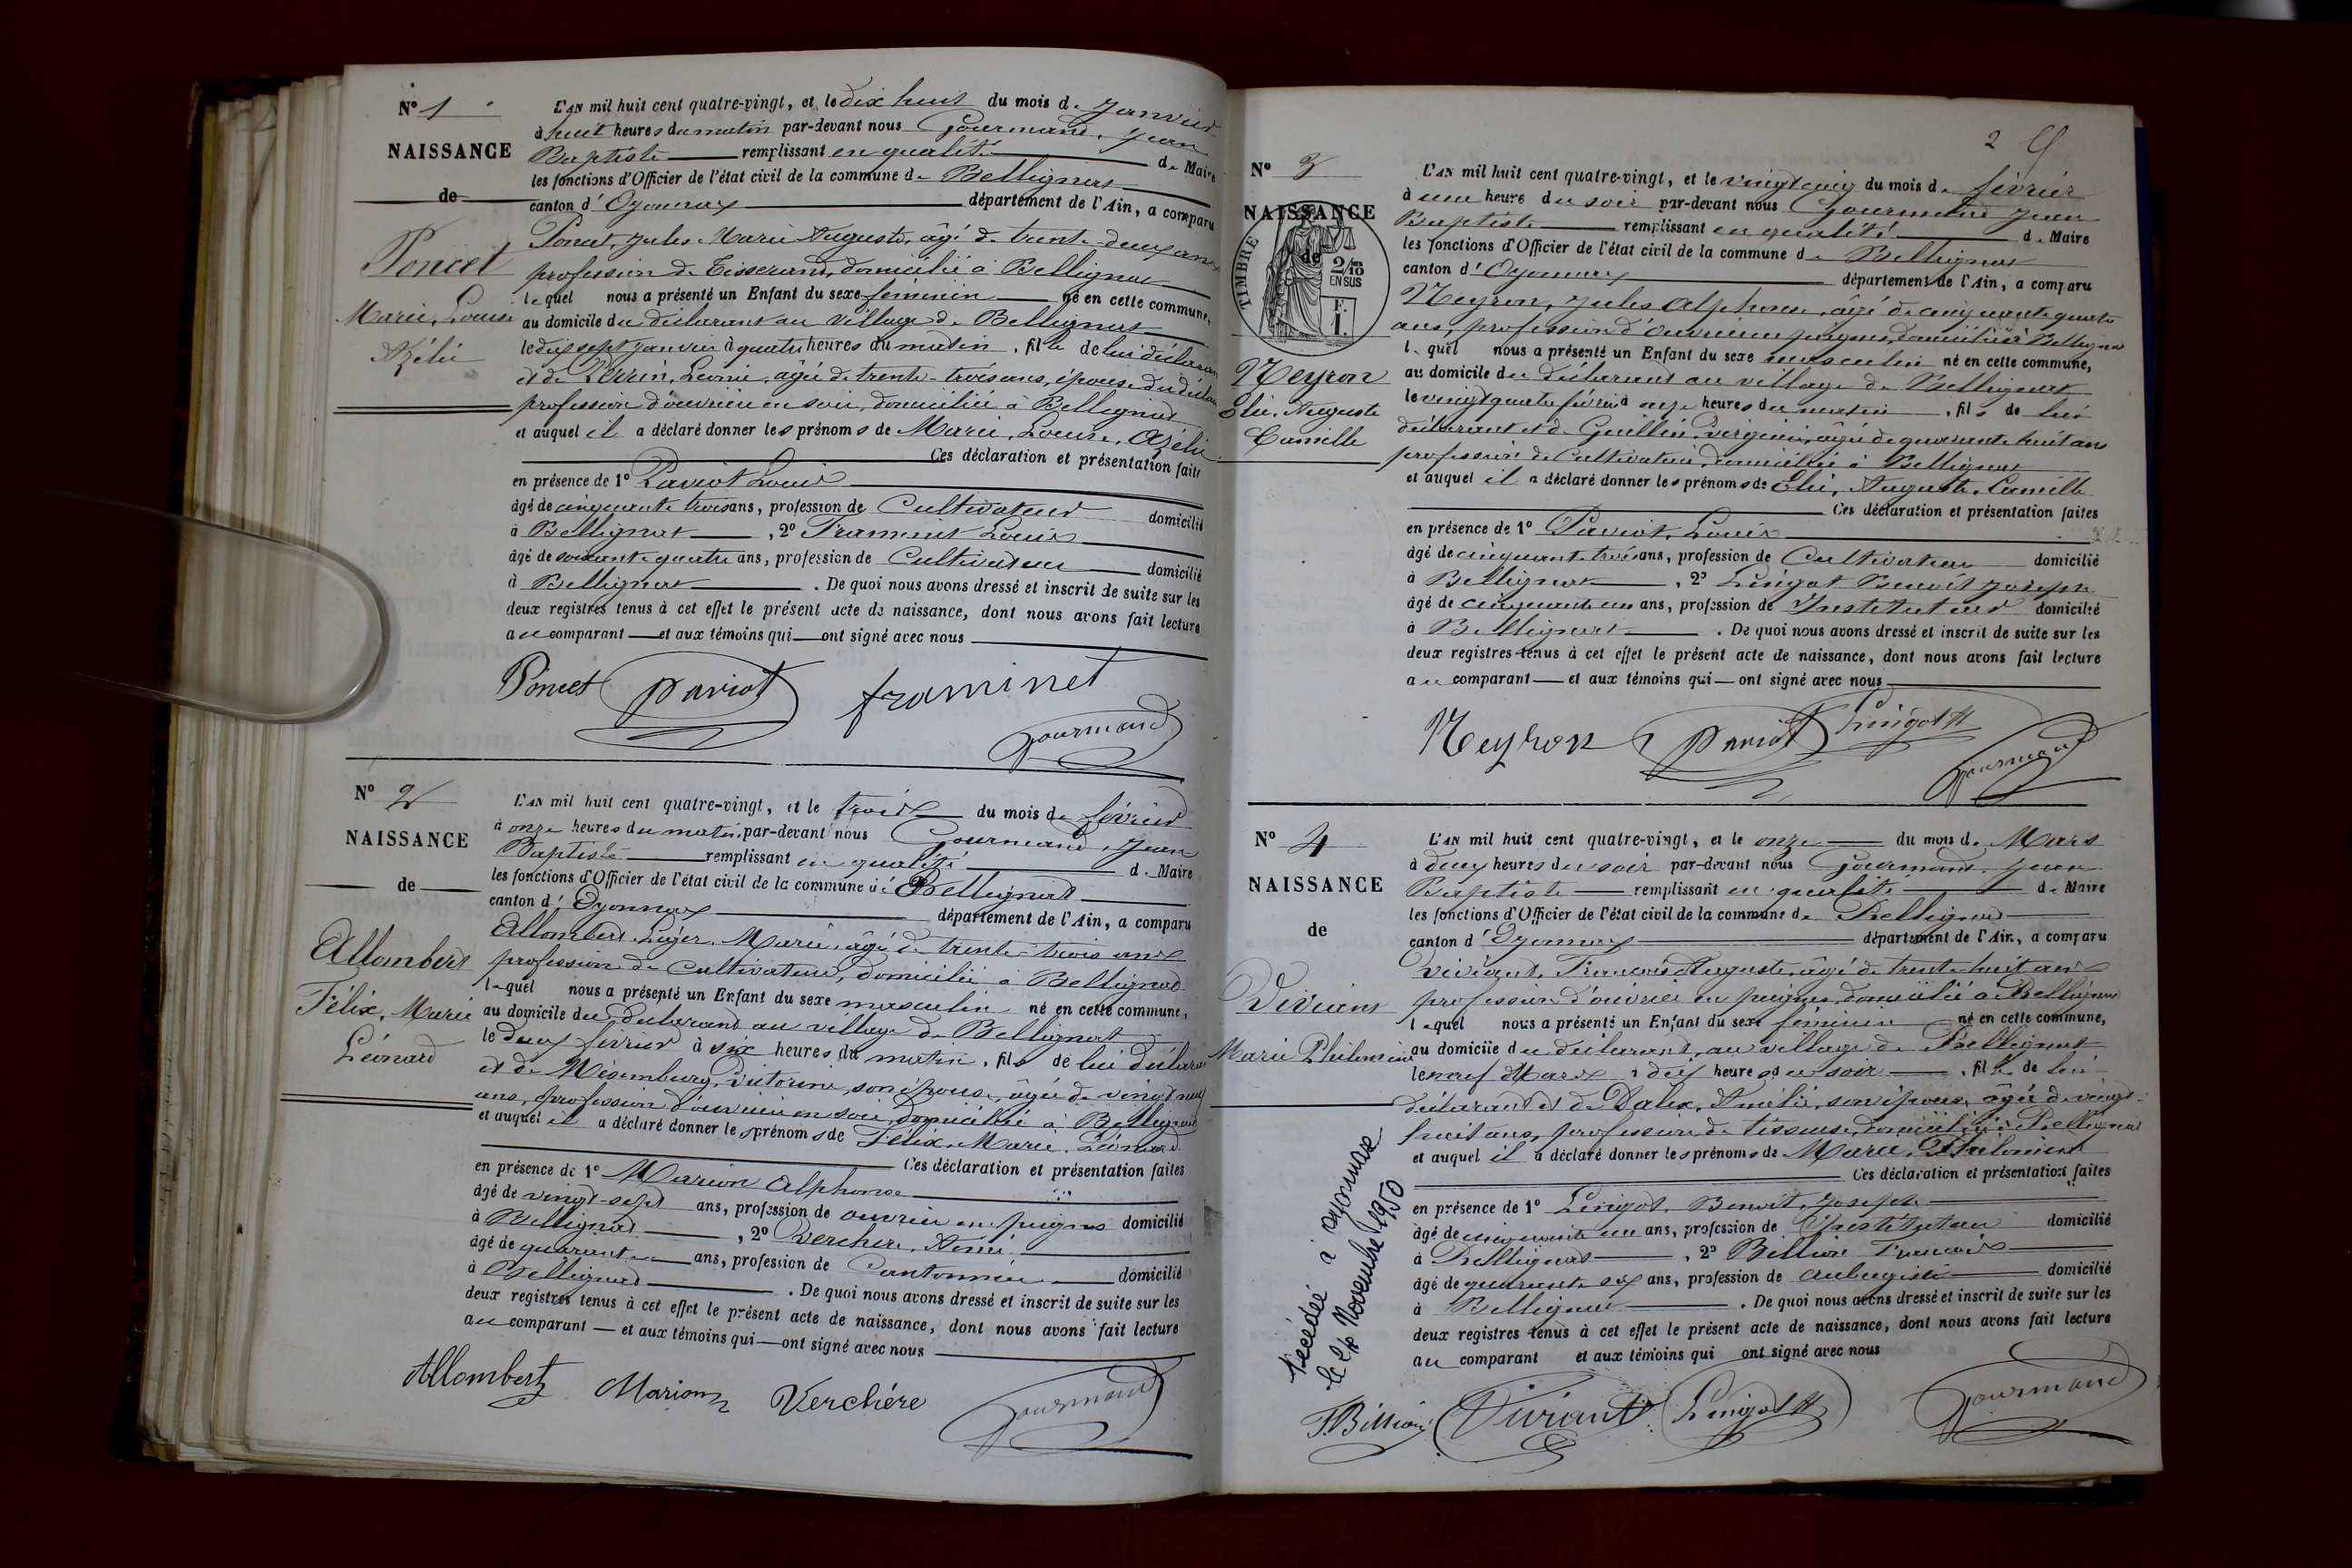 N° 1
NAISSANCE
de
Poncet
Marie, Louise
Azélie
L'AN mil huit cent quatre-vingt, et le dix huit du mois de Janvier
à huit heures du matin par-devant nous Gourmand, Jean
Baptiste remplissant en qualité de Maire
les fonctions d'Officier de l'état civil de la commune de Bellignat
canton d'Oyonnax département de l'Ain, a comparu
Poncet, Jules Marie Auguste, âgé de trente-deux ans
profession de Tisserand, domicilié à Bellignat
lequel nous a présenté un Enfant du sexe féminin né en cette commune,
au domicile du déclarant au village de Bellignat
le dix sept Janvier à quatre heures du matin, fille de lui déclarant
et de Perrin, Léonie, âgée de trente-trois ans, épouse du déclarant
profession d'ouvrière en soie, domiciliée à Bellignat
et auquel il a déclaré donner les prénoms de Marie, Louise, Azélie
Ces déclaration et présentation faites
en présence de 1° Paviot Louis
âgé de cinquante trois ans, profession de Cultivateur domicilié
à Bellignat, 2° Framinet Louis
âgé de soixante quatre ans, profession de Cultivateur domicilié
à Bellignat. De quoi nous avons dressé et inscrit de suite sur les
deux registres tenus à cet effet le présent acte de naissance, dont nous avons fait lecture
au comparant et aux témoins qui ont signé avec nous
Poncet Paviot framinet
Gourmand
N° 2
NAISSANCE
de
Allombert
Félix, Marie
Léonard
L'AN mil huit cent quatre-vingt, et le trois du mois de février
à onze heures du matin par-devant nous Gourmand, Jean
Baptiste remplissant en qualité de Maire
les fonctions d'Officier de l'état civil de la commune de Bellignat
canton d'Oyonnax département de l'Ain, a comparu
Allombert Léger Marie, âgé de trente-trois ans
profession de Cultivateur, domicilié à Bellignat
lequel nous a présenté un Enfant du sexe masculin né en cette commune,
au domicile du déclarant au village de Bellignat
le deux février à six heures du matin, fils de lui déclarant
et de Mésemburg, Victorine, son épouse, âgée de vingt neuf
ans, profession d'ouvrière en soie, domiciliée à Bellignat
et auquel il a déclaré donner les prénoms de Félix, Marie, Léonard
Ces déclaration et présentation faites
en présence de 1° Marion Alphonse
âgé de vingt-sept ans, profession de ouvrier en peignes domicilié
à Bellignat, 2° Verchère, Aimé
âgé de quarante ans, profession de Cantonnier domicilié
à Bellignat. De quoi nous avons dressé et inscrit de suite sur les
deux registres tenus à cet effet le présent acte de naissance, dont nous avons fait lecture
au comparant et aux témoins qui ont signé avec nous
Allombert Marion Verchére Gourmand
2
N° 3
NAISSANCE
de
TIMBRE
2/10
EN SUS
F.
1.
Neyron
Elie, Auguste
Camille
L'AN mil huit cent quatre-vingt, et le vingt cinq du mois de février
à une heure du soir par-devant nous Gourmand Jean
Baptiste remplissant en qualité de Maire
les fonctions d'Officier de l'état civil de la commune de Bellignat
canton d'Oyonnax département de l'Ain, a comparu
Neyron, Jules Alphonse, âgé de cinquante quatre
ans, profession d'ouvrier en peignes, domicilié à Bellignat
lequel nous a présenté un Enfant du sexe masculin né en cette commune,
au domicile du déclarant au village de Bellignat
le vingt quatre février à onze heures du matin, fils de lui
déclarant et de Guillin, Virginie, âgée de quarante huit ans
profession de Cultivateur, domiciliée à Bellignat
et auquel il a déclaré donner les prénoms de Elie, Auguste, Camille
Ces déclaration et présentation faites
en présence de 1° Paviot, Louis
âgé de cinquante trois ans, profession de Cultivateur domicilié
à Bellignat, 2° Lingot Benoît Joseph
âgé de cinquante un ans, profession de Instituteur domicilié
à Bellignat. De quoi nous avons dressé et inscrit de suite sur les
deux registres tenus à cet effet le présent acte de naissance, dont nous avons fait lecture
au comparant et aux témoins qui ont signé avec nous
Neyron Paviot Lingot
Gourmand
N° 4
NAISSANCE
de
Viviant
Marie Philomène
L'AN mil huit cent quatre-vingt, et le onze du mois de Mars
à deux heures du soir par-devant nous Gourmand, Jean
Baptiste remplissant en qualité de Maire
les fonctions d'Officier de l'état civil de la commune de Bellignat
canton d'Oyonnax département de l'Ain, a comparu
Viviant, François Auguste, âgé de trente huit ans
profession d'ouvrier en peignes, domicilié à Bellignat
lequel nous a présenté un Enfant du sexe féminin né en cette commune,
au domicile du déclarant, au village de Bellignat
le neuf Mars à dix heures du soir, fille de lui
déclarant et de Dalex, Amélie, son épouse, âgée de vingt-
huit ans, profession de tisseuse, domiciliée à Bellignat
et auquel il a déclaré donner les prénoms de Marie, Philomène
Ces déclaration et présentation faites
en présence de 1° Lingot, Benoît, Joseph
âgé de cinquante un ans, profession de Instituteur domicilié
à Bellignat, 2° Billion François
âgé de quarante six ans, profession de aubergiste domicilié
à Bellignat. De quoi nous avons dressé et inscrit de suite sur les
deux registres tenus à cet effet le présent acte de naissance, dont nous avons fait lecture
au comparant et aux témoins qui ont signé avec nous
décédée à oyonnax
le 24 Novembre 1950
F. Billion Viviant Lingot Gourmand